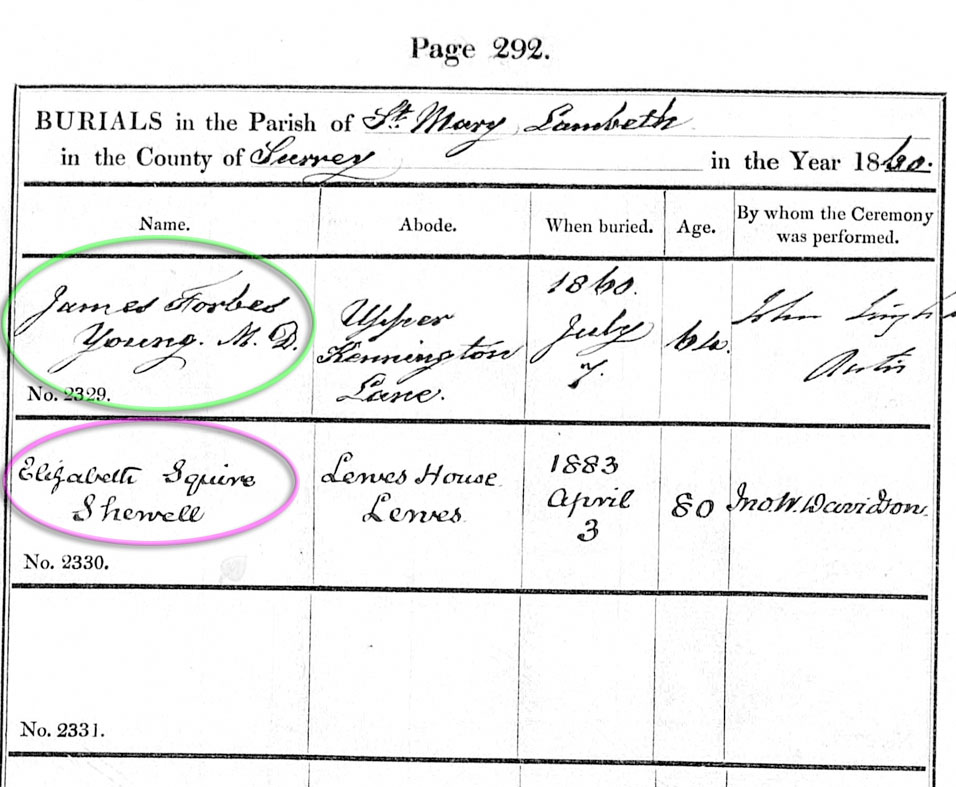 Page 292.
BURIALS in the Parish of St. Mary, Lambeth
in the County of Surrey in the Year 1860.
Name. Abode. When buried. Age. By whom the Ceremony was performed.
James Forbes
Young. M. D.
No. 2329.
Upper
Kennington
Lane.
1860.
July
7.
64.
John
Elizabeth Squire
Shewell
No. 2330.
Lewes House
Lewes
1883
April
3
80
Jno. W. Davidson.
No. 2331.